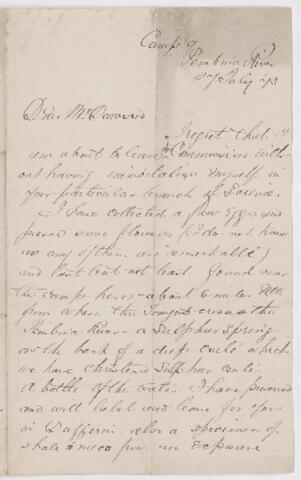 Camp of
Pembina River
27 July 73
Dear Mr Dawson
I regret that I
am about to leave the Commission with
out having immortalized myself in
your particular branch of Science.
I have collected a few Eggs and
pressed some flowers (I do not know
if any of them are remarkable)
and last but not least found near
the Camp here about 6 miles
from where the crosses the
Pembina River a Sulphur Spring
on the bank of a deep Coulé which
we have christened Sulphur Coulé
A bottle of the water I have preserved
and will label and leave for you
in Dufferin. also a specimen of
shale & mica from an Exposure